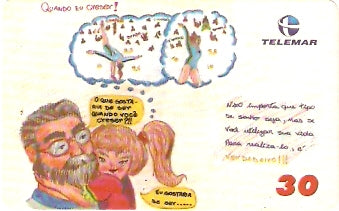 QUANDO EU CRESCER!
TELEMAR
O QUE GOSTA-
RIA DE SER
QUANDO VOCÊ
CRESCER?!!
NÃO importa que tipo
de sonho seja, mas se
você utilizou sua vida
Para realizá-lo, é
verdadeiro!!!
EU GOSTARIA
DE SER.....
30